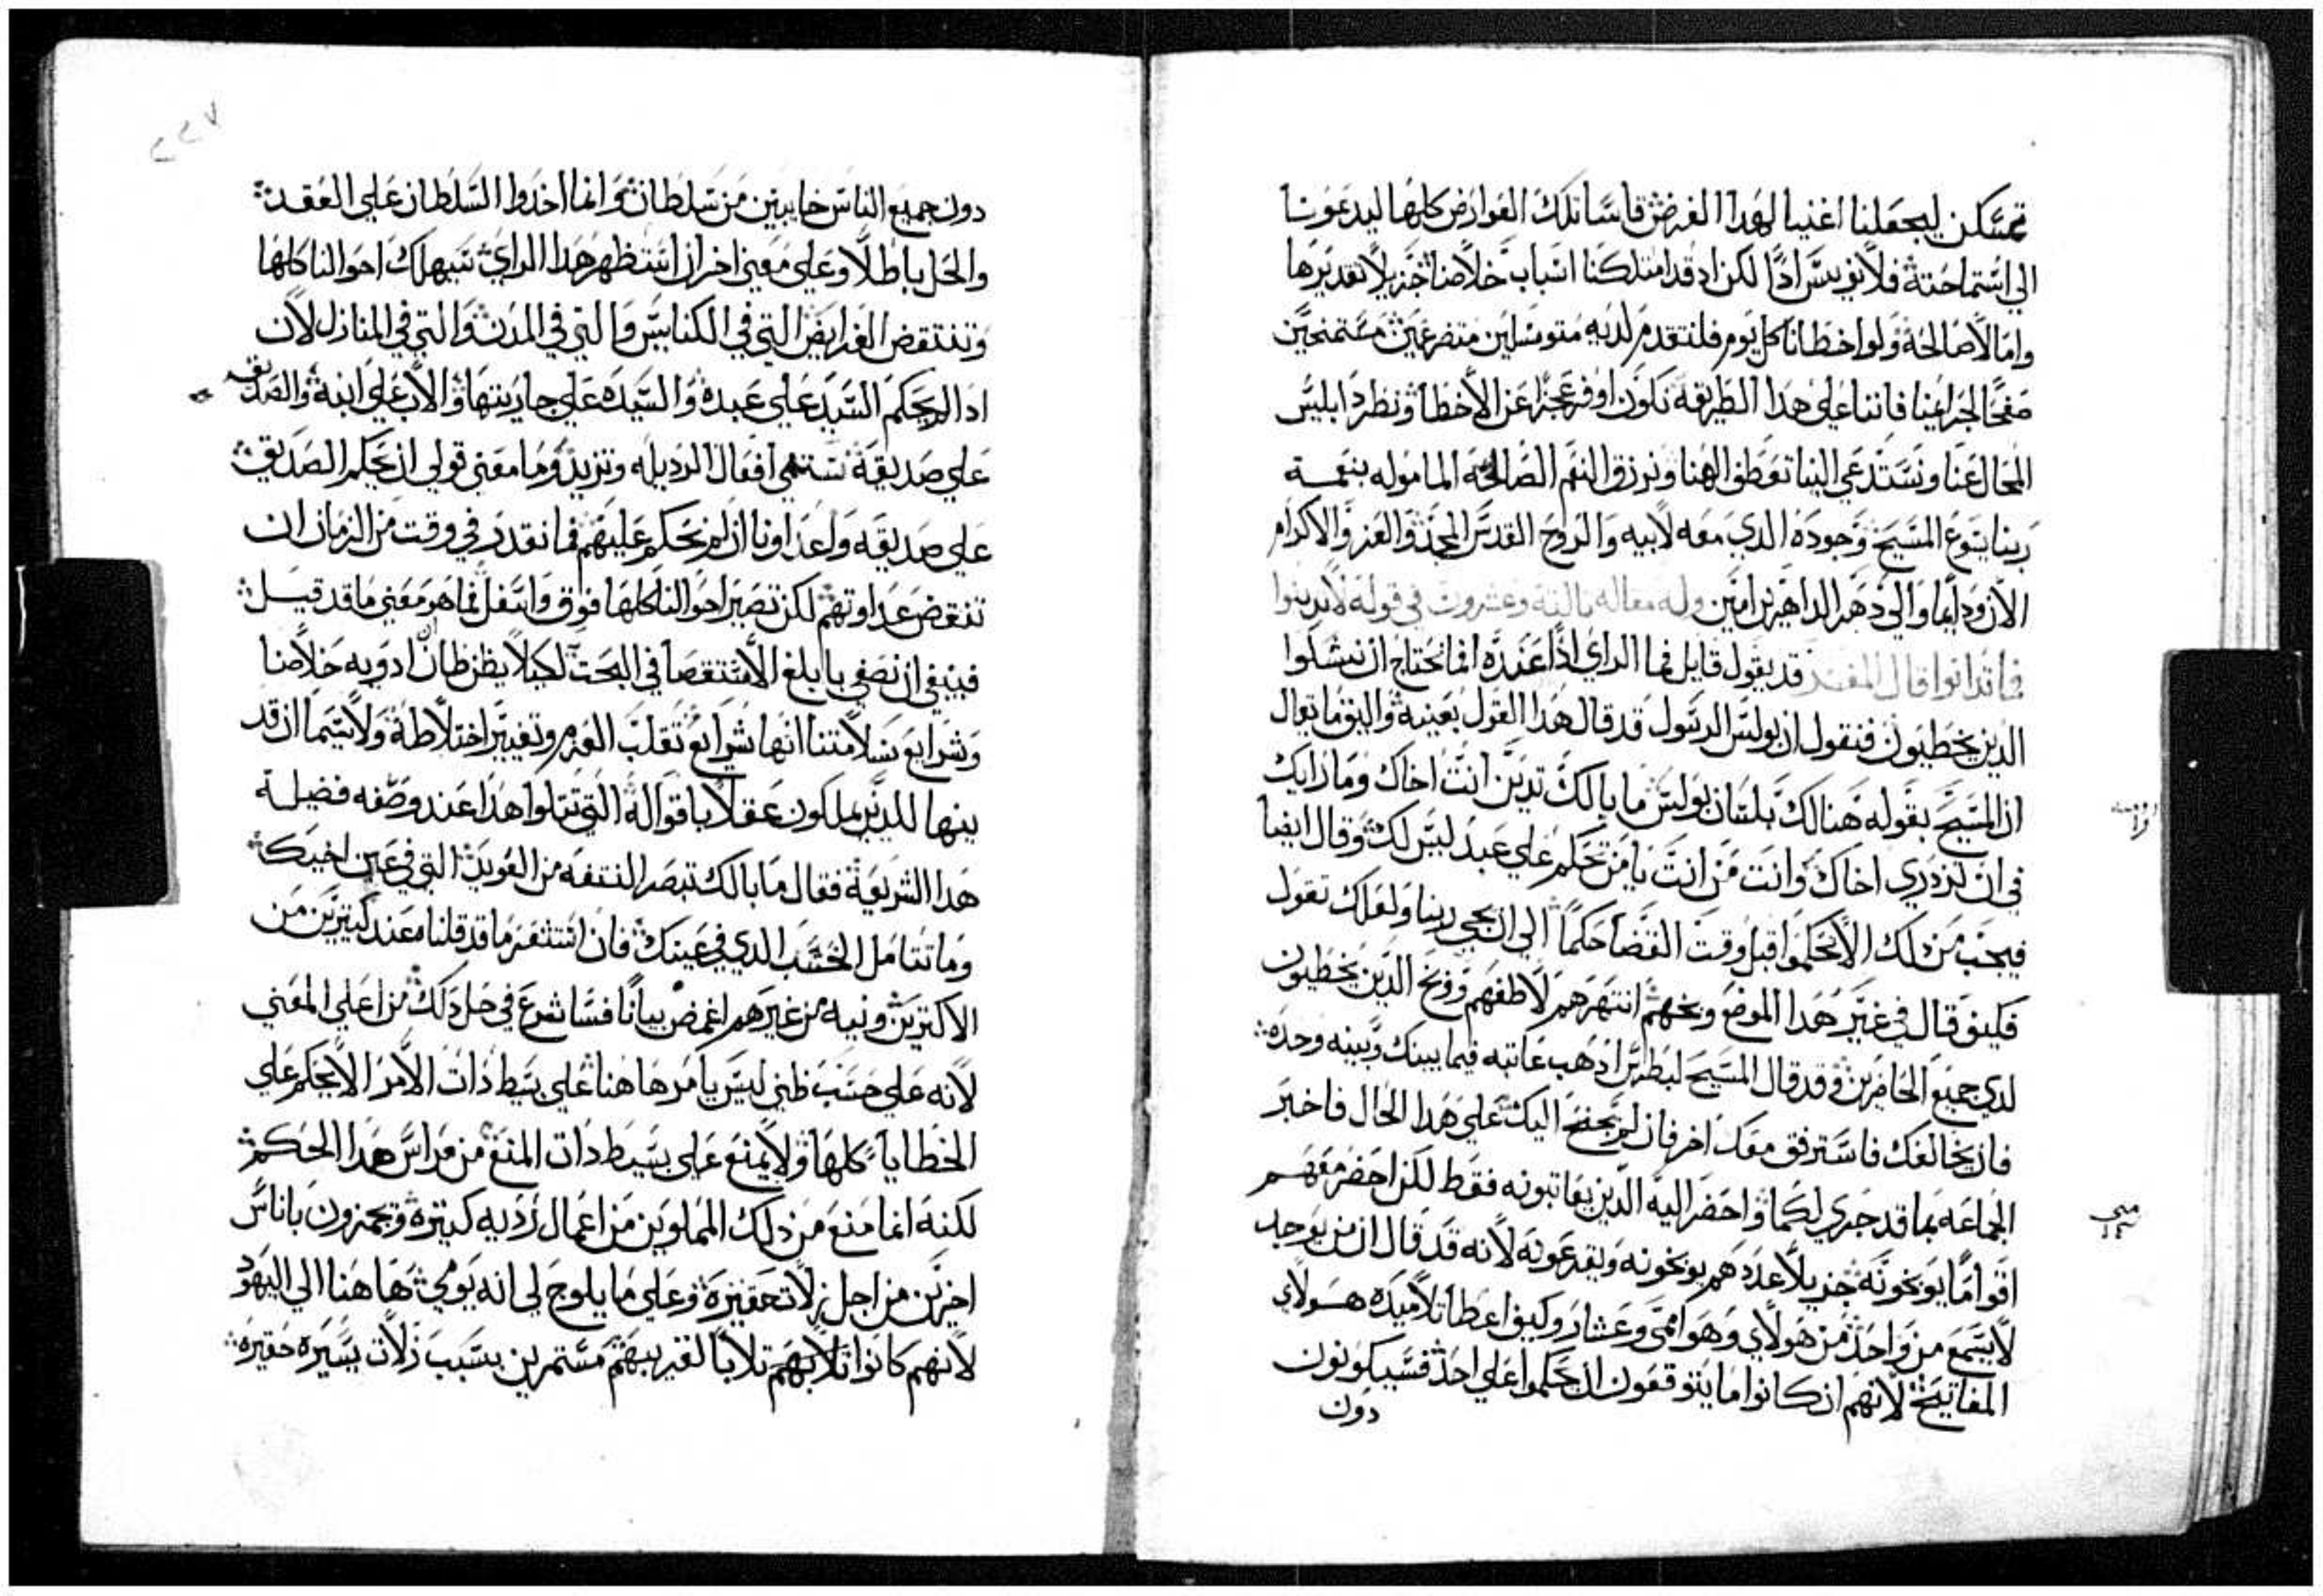 تمسكن ليجعلنا اغنيا لهدا الغرض فاسا تلك العوارض كلها ليدعونا
الي استماحته فلا نويس ادًا لكن اد قد امتلكنا اسباب خلاصنا جزيلا تقديرها
واما لا صالحة ولو اخطانا كل يوم فلنتقدم لديه متوسلين متضرعين مستمنحين
صفحًا لجرايمنا فاننا علي هدا الطريقة نكون اوفر عجزًا عن الاخطا ونطرد ابليس
المحال عنا ونستدعي الينا تعطف الهنا ونرزق النعم الصالحه الماموله بنعمة
ربنا يسوع المسيح وجوده الدي معه لابيه والروح القدس المجد والعز والاكرام
الان ودايما والي دهر الداهرين امين وله مقاله تالتة وعشرون في قوله لا تدينوا
فما تدانوا قال المفسر قد يقول قايل فما الراي اذًا عنده انما نحتاج ان نشكوا
الدين يخطيون فنقول ان بولس الرسول قد قال هدا القول بعينه واليق ما يقال
ان المسيح بقوله هنالك بلسان بولس ما بالك تدين انت اخاك وما رايك
في ان تزدري اخاك وانت من انت يا من تحكم علي عبد ليس لك وقال ايضا
فيجب من دلك الا تحكموا قبل وقت القضا حكمًا الي ان يجي ربنا ولعلك تقول
فكيف قال في غير هدا الموضع وبخهم انتهرهم لاطفهم ووبخ الدين يخطيون
لدي جميع الحاضرين وقد قال المسيح لبطرس ادهب عاتبه فيما بينك وبينه وحده
فان خالفك فاسترفق معك اخر فان لم يجنح اليك علي هدا الحال فاخبر
الجماعه بما قد جري لكما واحضر اليه الدين يعاتبونه فقط لكن احضر معهم
اقوامًا يوبخونه جزيلا عددهم يوبخونه ويقرعونه لانه قد قال ان من يوجد
لا يسمع من واحد من هولاي وهو اممي وعشار وكيف اعطا تلاميده هولاي
المفاتيح لانهم ان كانوا ما يتوقعون ان يحكموا علي احد فسيكونون
دون
دون جميع الناس خايبين من سلطان وانما اخدوا السلطان علي العقد
والحل باطلًا وعلي معني اخر ان استظهر هدا الراي تتبهلك احوالنا كلها
وتنتقض الفرايض التي في الكنايس والتي في المدن والتي في المنازل لان
ادا لم يحكم السيد علي عبده والسيده علي جاريتها والاب علي ابنه والصديق
علي صديقة ستنمي افعال الرديله وتزيد وما معني قولي ان يحكم الصديق
علي صديقه واعداونا ان لم نحكم عليهم فما نقدر في وقت من الزمان ان
ننقض عداوتهم لكن تصير احوالنا كلها فوق واسفل فما هو معني ما قد قيل
فينبغي ان نصغي بابلغ الاستقصا في البحت لكيلا يظن ظان ان ادويه خلاصنا
وشرايع سلامتنا انها شرايع تقلب العزم وتغيير اختلاطة ولا سيما ان قد
بينها للدين يملكون عقلًا باقواله التي تتلوا هدا عند وصفه فضيلة
هدا الشريعة فقال ما بالك تبصر النتفه من العويد التي في عين اخيك
وما تتامل الخشب الدي في عينك فان استثفر ما قد قلنا معند كتيرين من
الاكترين ونيه من غيرهم اغمض بيانًا فسا شرع في حل دلك من اعلي المعني
لانه علي حسب ظني ليس يامر ها هنا علي بسيط ذات الامر الا يحكم علي
الخطايا كلها ولا يمنع علي بسيط دات المنع من مراس هدا الحكم
لكنه انما منع من دلك المملوين من اعمال رديه كتيرة ويهمزون باناس
اخرين من اجل زلات حقيرة وعلي ما يلوح لي انه يومي ها هنا الي اليهود
لانهم كانوا تلابهم تلابًا لقريبهم مستمرين بسبب زلات يسيره حقيره